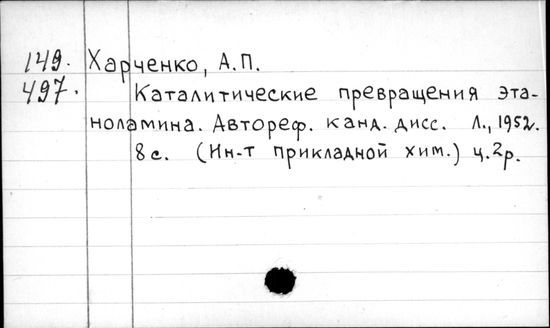 149. Харченко, А.П.
497. Каталитические превращения эта-
ноламина. Автореф. канд. дисс. Л., 1952.
8 с. (Ин-т прикладной хим.) ц. 2 р.